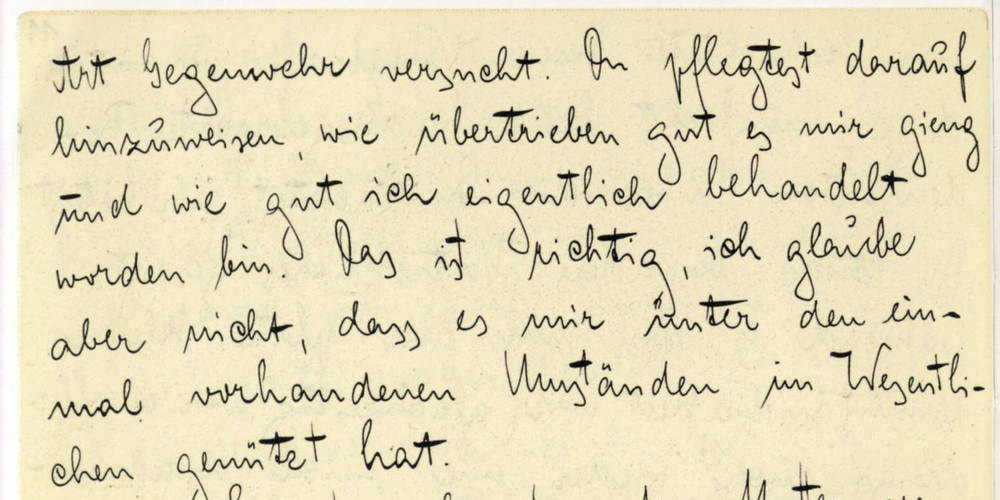 Art Gegenwehr versucht. Du pflegtest darauf
hinzuweisen, wie übertrieben gut es mir gieng
und wie gut ich eigentlich behandelt
worden bin Das ist richtig, ich glaube
aber nicht, dass es mir unter den ein-
mal vorhandenen Umständen im Wesentli-
chen genützt hat.